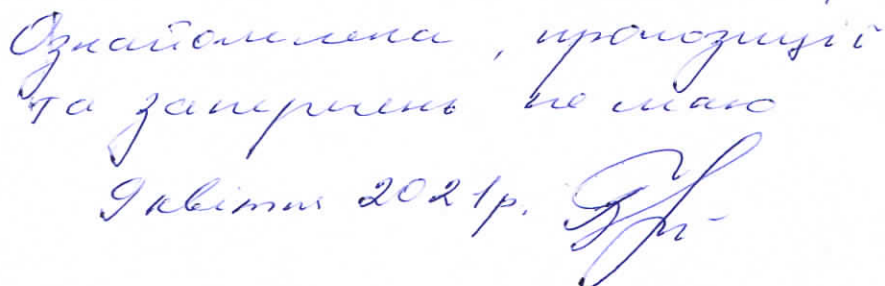 Ознайомлена, пропозиції
та заперечень не маю
9 квітня 2021р.